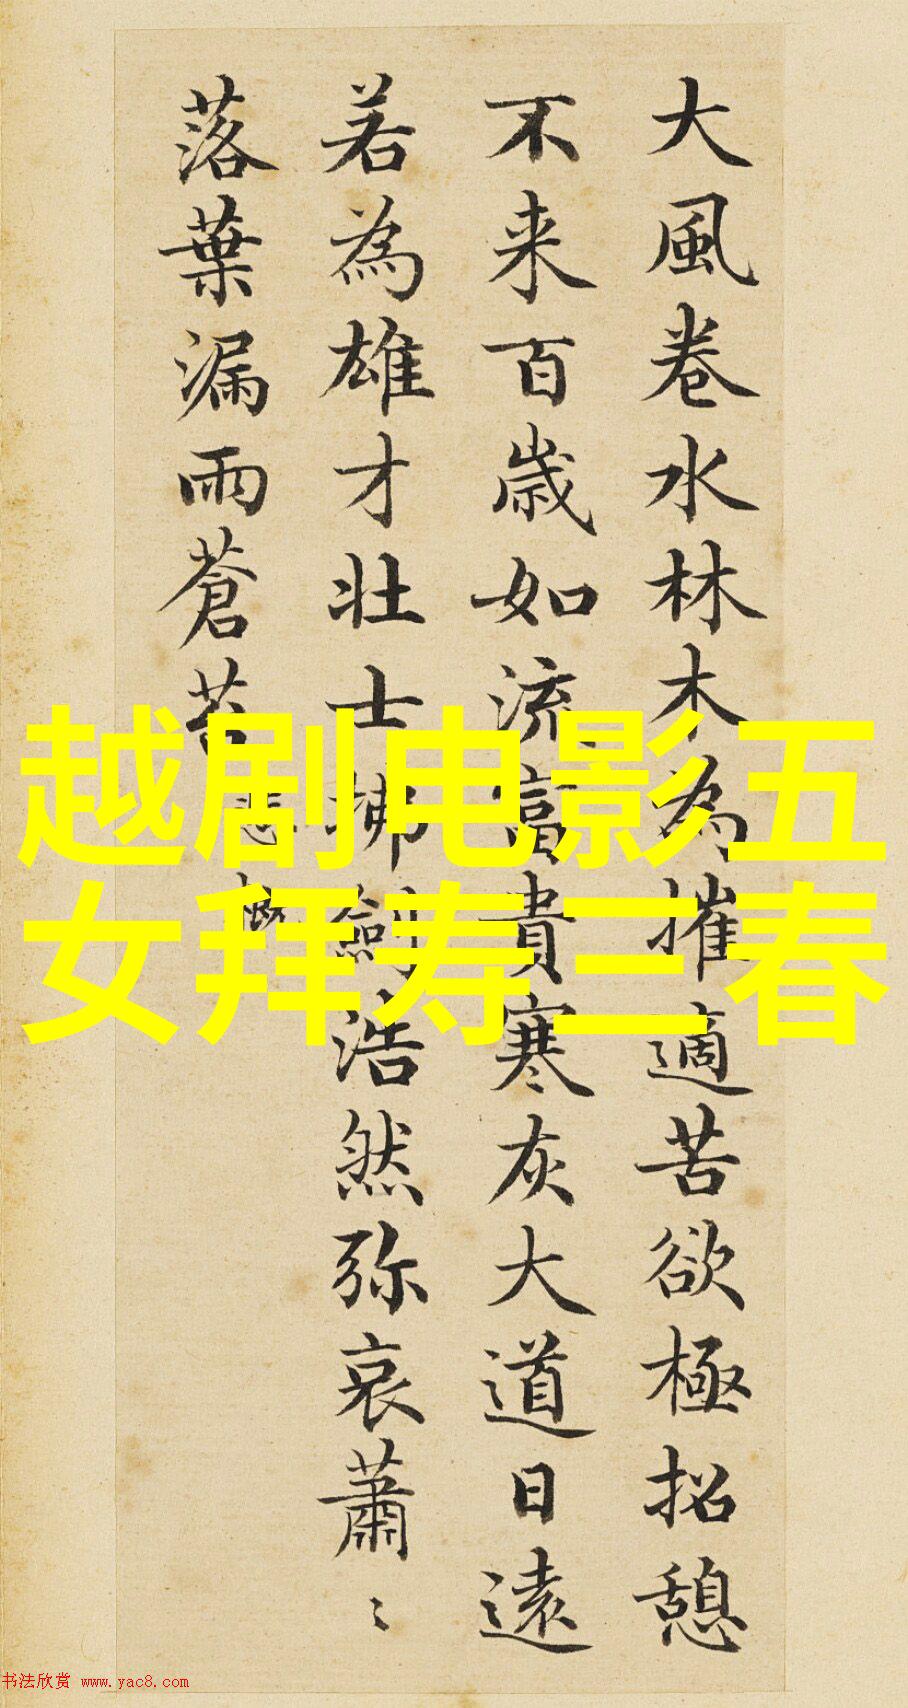 大風卷水林木為摧適苦欲極招憩
不来百歳如流富貴寒灰大道日遠
若為雄才壮士拂劍浩然弥哀蕭〻
落葉漏雨蒼苔
悲慨
越剧电影五
女拜寿三春
书法欣赏 www.yac8.com